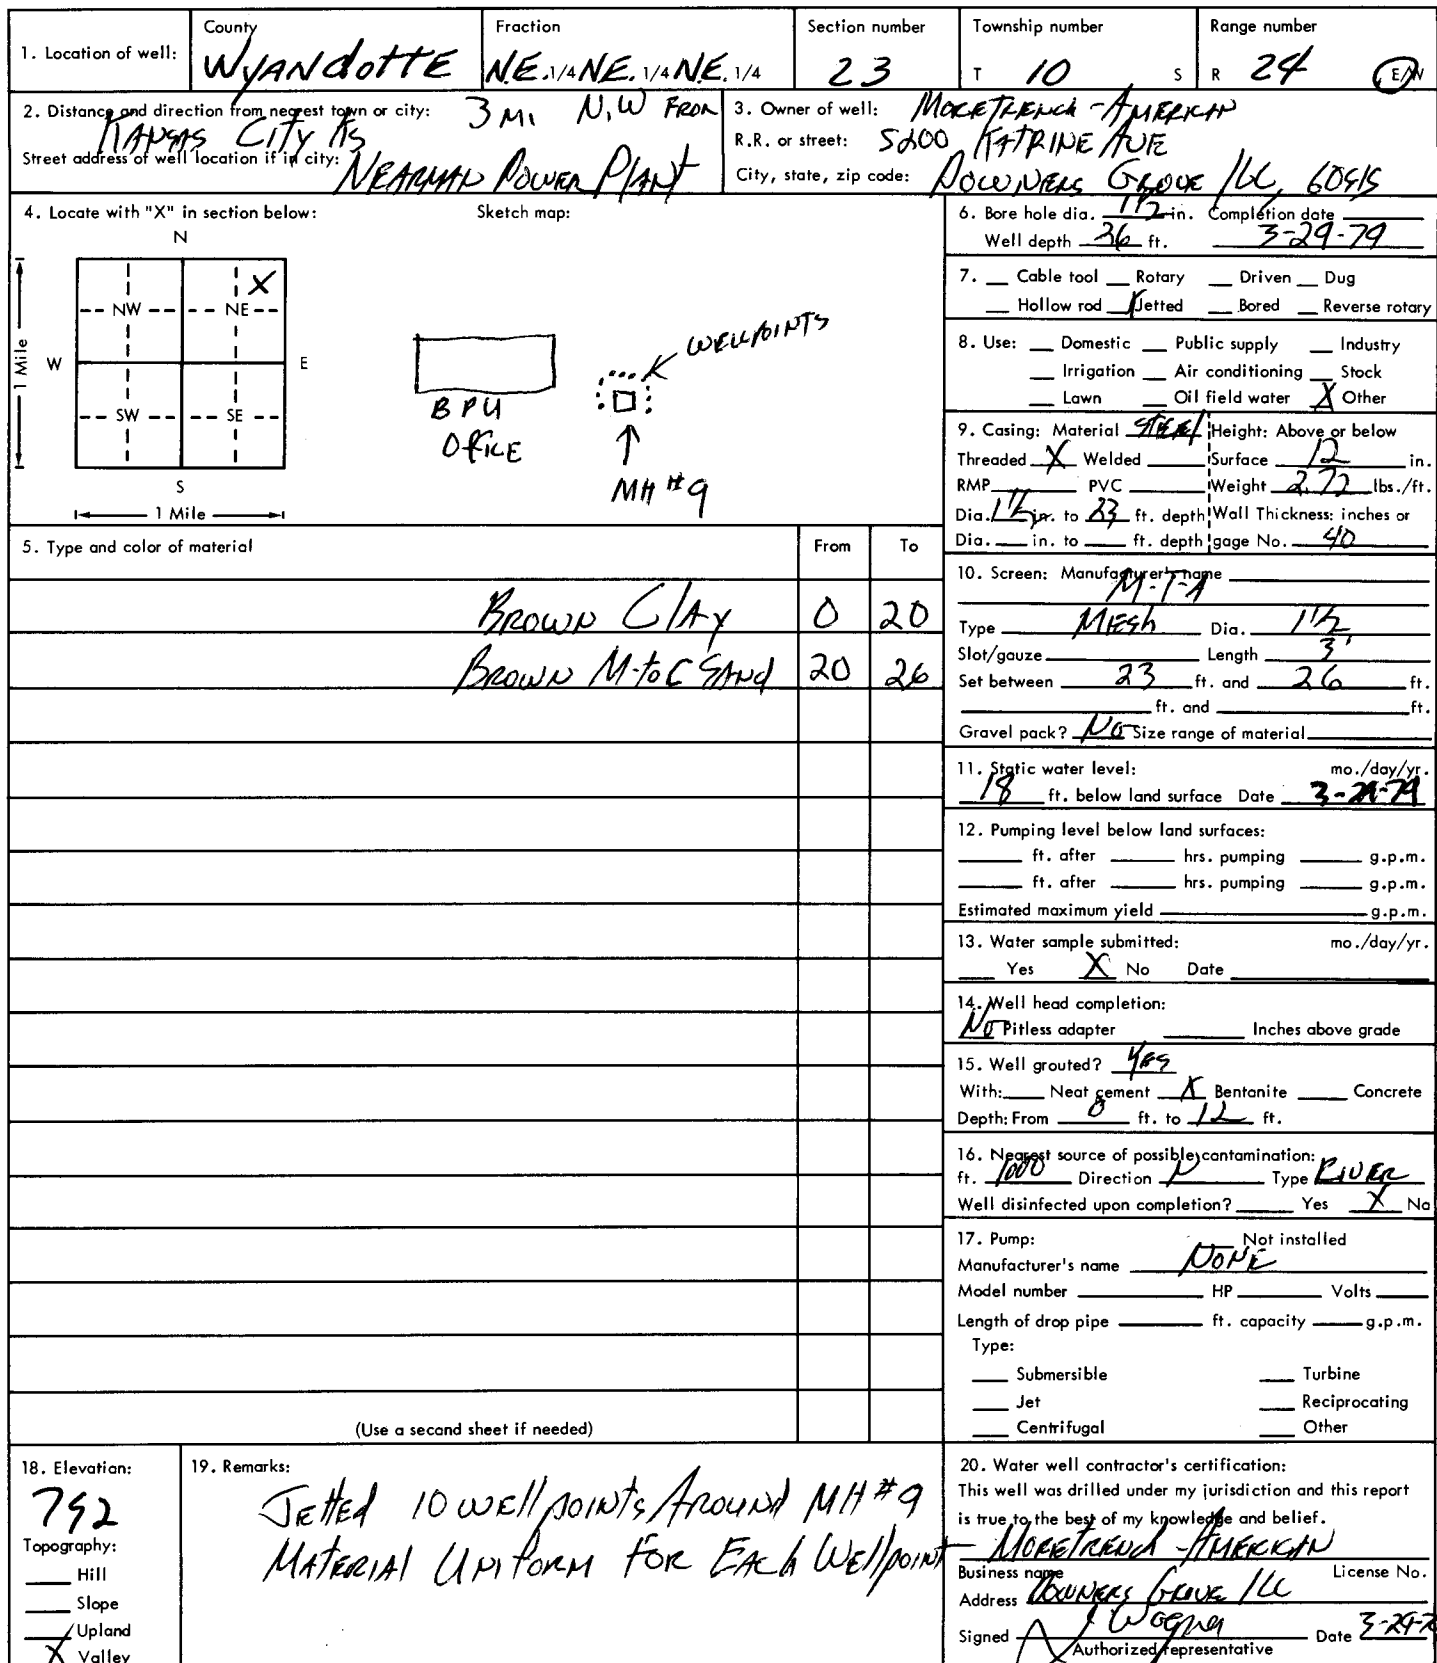 1. Location of well:
County
WYANdOTTE
Fraction
N.E. 1/4 N.E. 1/4 N.E. 1/4
Section number
23
Township number
T 10 S
Range number
R 24 E/W
2. Distance and direction from nearest town or city: 3 Mi N.W FROM
KANSAS CITY KS
Street address of well location if in city: NEARMAN POWER PLANT
3. Owner of well: MORETRENCH-AMERICAN
R.R. or street: 5200 KATRINE AVE
City, state, zip code: DOWNERS GROVE ILL, 60515
4. Locate with "X" in section below:
Sketch map:
N
X
NW NE
W E
SW SE
S
1 Mile
1 Mile
WELLPOINTS
BPU
OFFICE
MH #9
5. Type and color of material From To
BROWN CLAY 0 20
BROWN M-to C SANd 20 26
(Use a second sheet if needed)
6. Bore hole dia. 1 1/2 in. Completion date
Well depth 36 ft. 3-29-79
7. Cable tool Rotary Driven Dug
Hollow rod X Jetted Bored Reverse rotary
8. Use: Domestic Public supply Industry
Irrigation Air conditioning Stock
Lawn Oil field water X Other
9. Casing: Material STEEL Height: Above or below
Threaded X Welded Surface 12 in.
RMP PVC Weight 2.72 lbs./ft.
Dia. 1 1/2 in. to 23 ft. depth Wall Thickness: inches or
Dia. in. to ft. depth gage No. 40
10. Screen: Manufacturer's name
M-T-A
Type MESh Dia. 1 1/2
Slot/gauze Length 3'
Set between 23 ft. and 26 ft.
ft. and ft.
Gravel pack? NO Size range of material
11. Static water level: mo./day/yr.
18 ft. below land surface Date 3-29-79
12. Pumping level below land surfaces:
ft. after hrs. pumping g.p.m.
ft. after hrs. pumping g.p.m.
Estimated maximum yield g.p.m.
13. Water sample submitted: mo./day/yr.
Yes X No Date
14. Well head completion:
NO Pitless adapter Inches above grade
15. Well grouted? YES
With: Neat cement X Bentanite Concrete
Depth: From 0 ft. to 12 ft.
16. Nearest source of possible contamination:
ft. 1000 Direction N Type RIVER
Well disinfected upon completion? Yes X No
17. Pump: Not installed
Manufacturer's name NONE
Model number HP Volts
Length of drop pipe ft. capacity g.p.m.
Type:
Submersible Turbine
Jet Reciprocating
Centrifugal Other
18. Elevation:
792
Topography:
Hill
Slope
Upland
X Valley
19. Remarks:
JETTEd 10 WEllpoints AROUND MH #9
MATERIAl UNIFORM FOR EACh WEllpoint
20. Water well contractor's certification:
This well was drilled under my jurisdiction and this report
is true to the best of my knowledge and belief.
MORETRENCH-AMERICAN
Business name License No.
Address DOWNERS GROVE ILL
Signed Date 3-29-7
Authorized representative